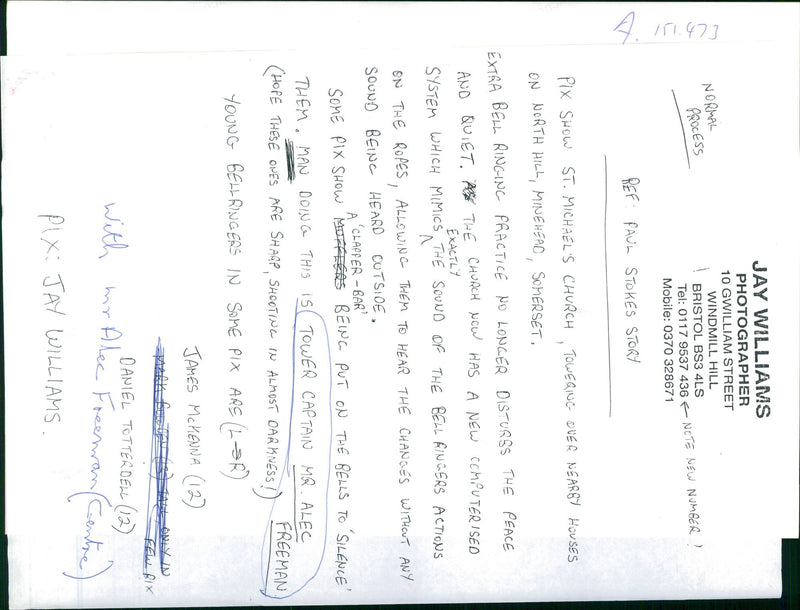 A. 151.473
JAY WILLIAMS
PHOTOGRAPHER
10 GWILLIAM STREET
WINDMILL HILL
BRISTOL BS3 4LS
Tel: 0117 9537 436 ← NOTE NEW NUMBER!
Mobile: 0370 328671
NORMAL
PROCESS
REF: PAUL STOKES STORY
PIX SHOW ST. MICHAEL'S CHURCH, TOWERING OVER NEARBY HOUSES
ON NORTH HILL, MINEHEAD, SOMERSET.
EXTRA BELL RINGING PRACTICE NO LONGER DISTURBS THE PEACE
AND QUIET. THE CHURCH NOW HAS A NEW COMPUTERISED
SYSTEM WHICH MIMICS EXACTLY THE SOUND OF THE BELL RINGERS ACTIONS
ON THE ROPES, ALLOWING THEM TO HEAR THE CHANGES WITHOUT ANY
SOUND BEING HEARD OUTSIDE.
SOME PIX SHOW MUFFLERS A 'CLAPPER-BAR' BEING PUT ON THE BELLS TO 'SILENCE'
THEM. MAN DOING THIS IS TOWER CAPTAIN MR. ALEC FREEMAN
(HOPE THESE ONES ARE SHARP, SHOOTING IN ALMOST DARKNESS!)
YOUNG BELLRINGERS IN SOME PIX ARE (L→R)
JAMES McKENNA (12)
FEW PIX
DANIEL TOTTERDELL (12)
With Mr Alec Freeman (Centre)
PIX: JAY WILLIAMS.